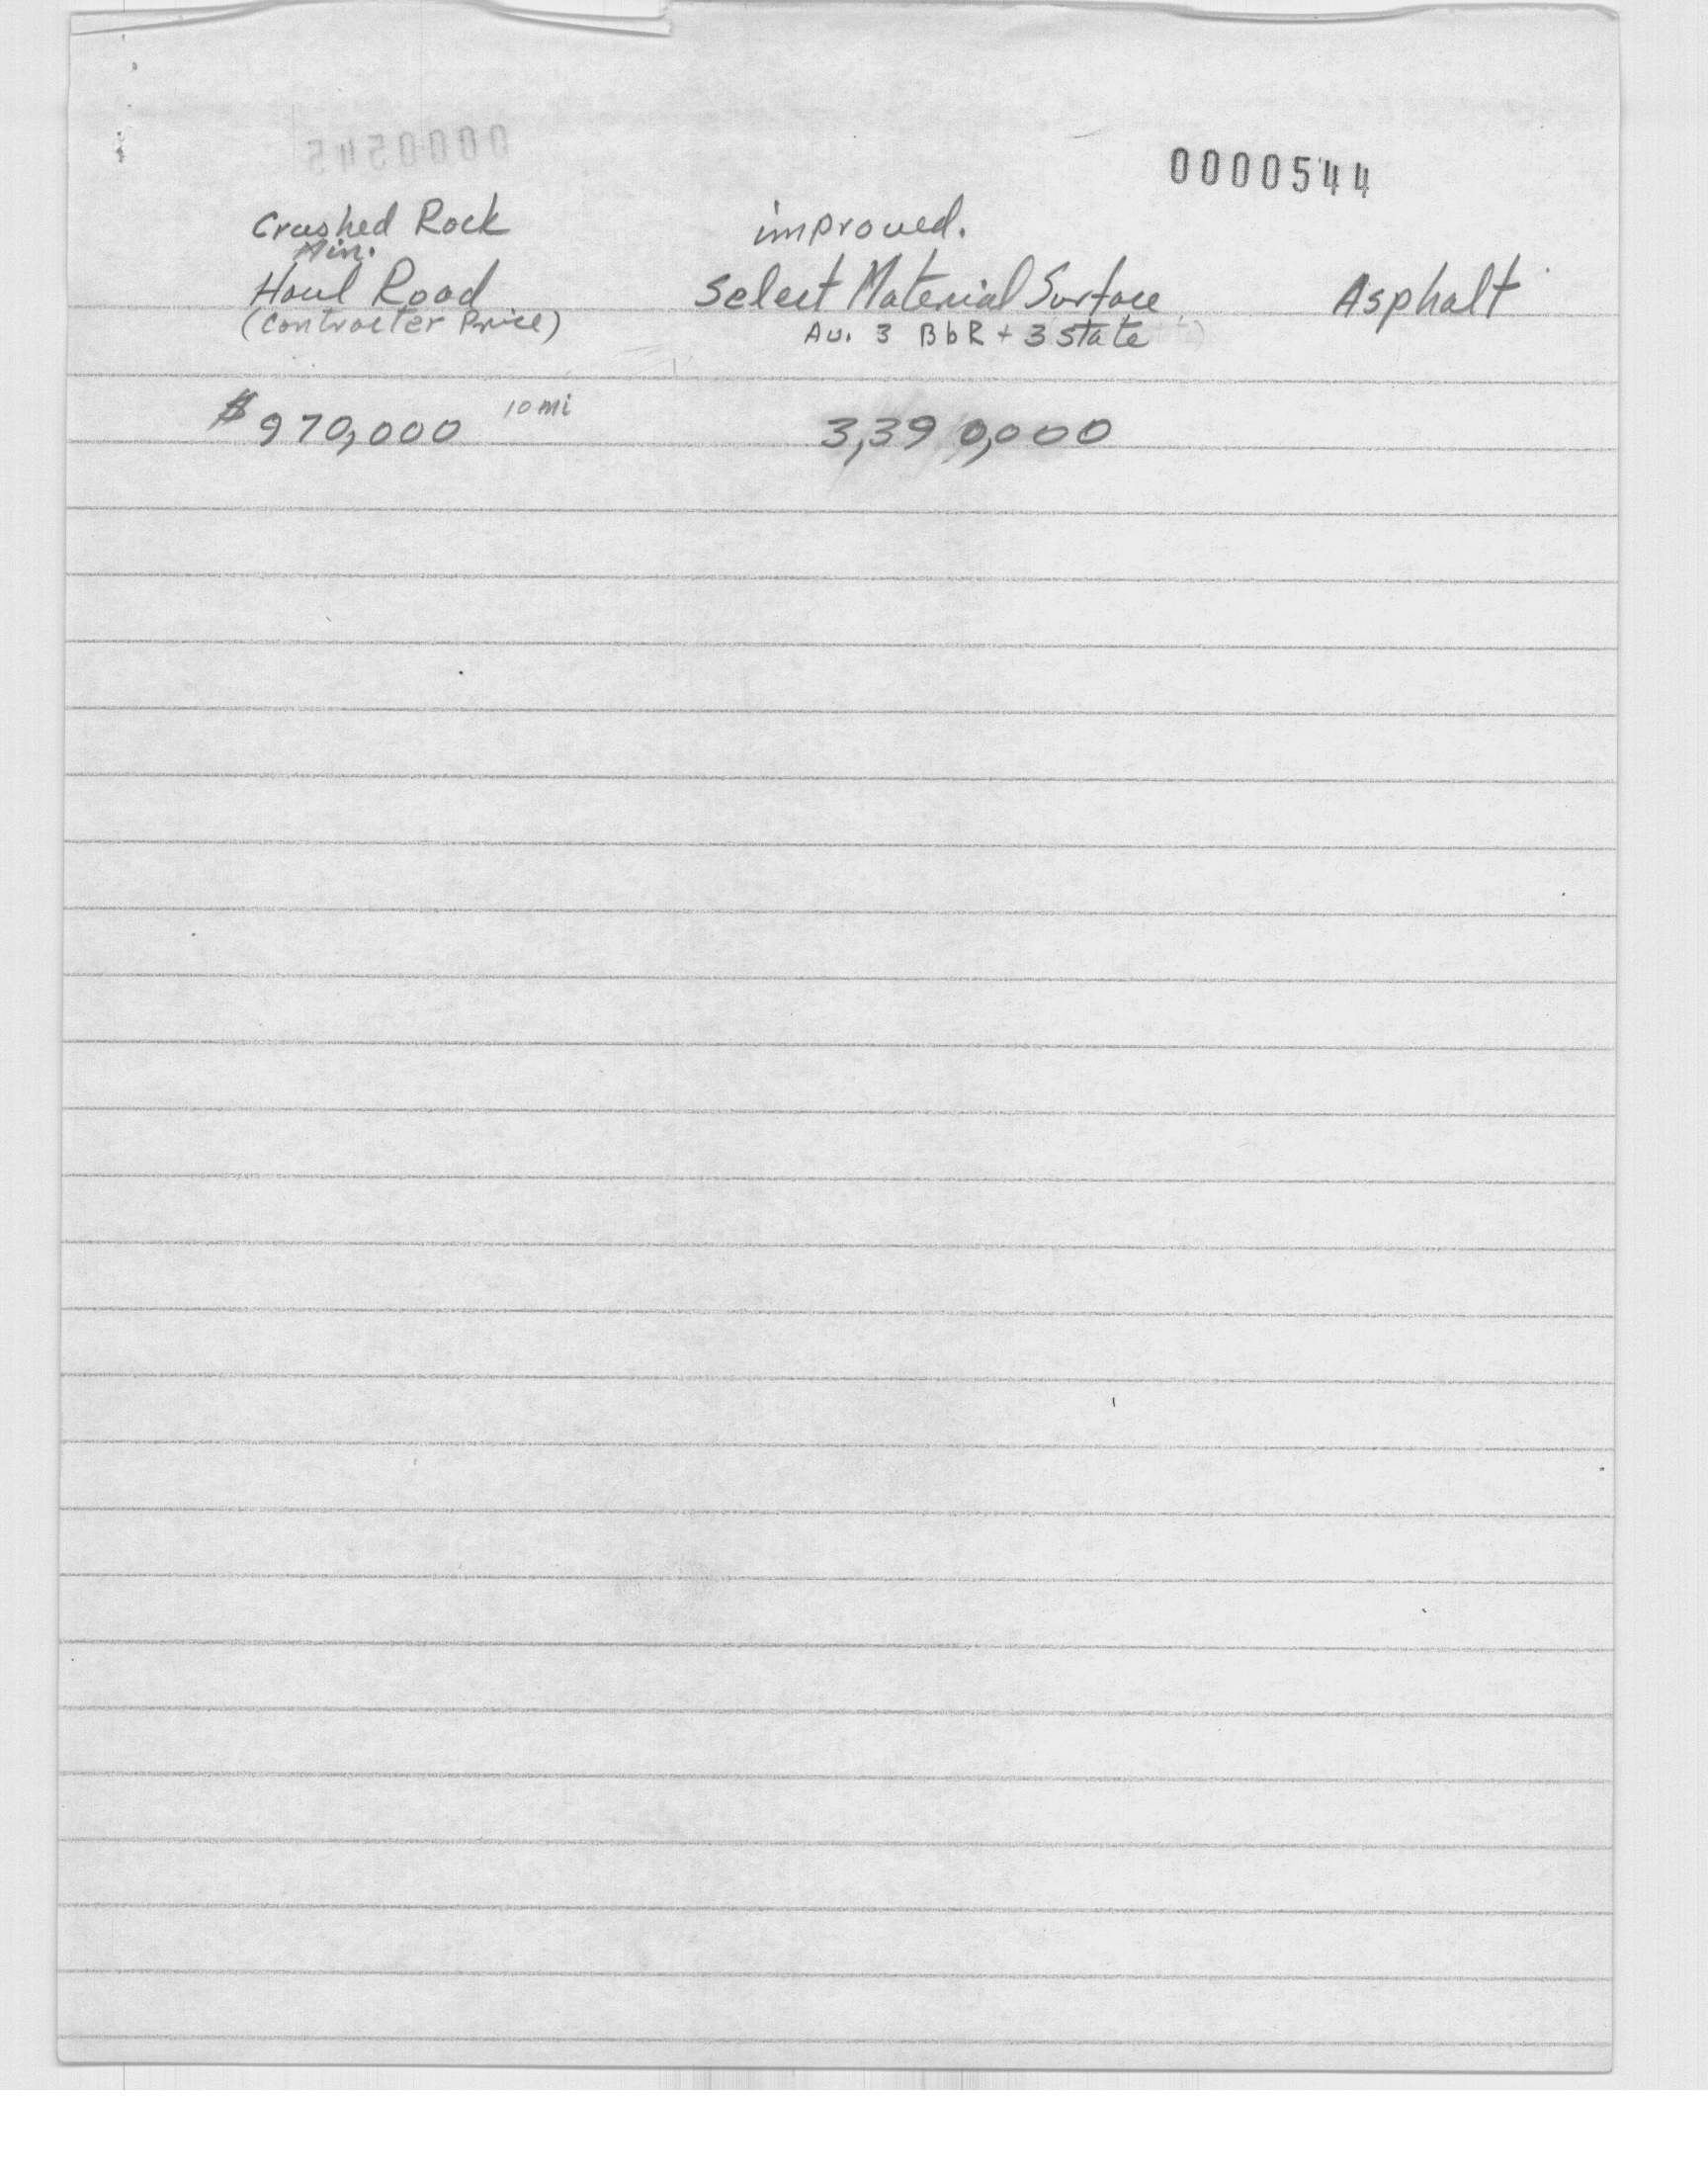 0000545
0000544
Crushed Rock
Min.
Haul Road
(Contracter Price)
improved.
Select Material Surface
Av. 3 BbR + 3 State
Asphalt
$970,000 10 mi
3,390,000